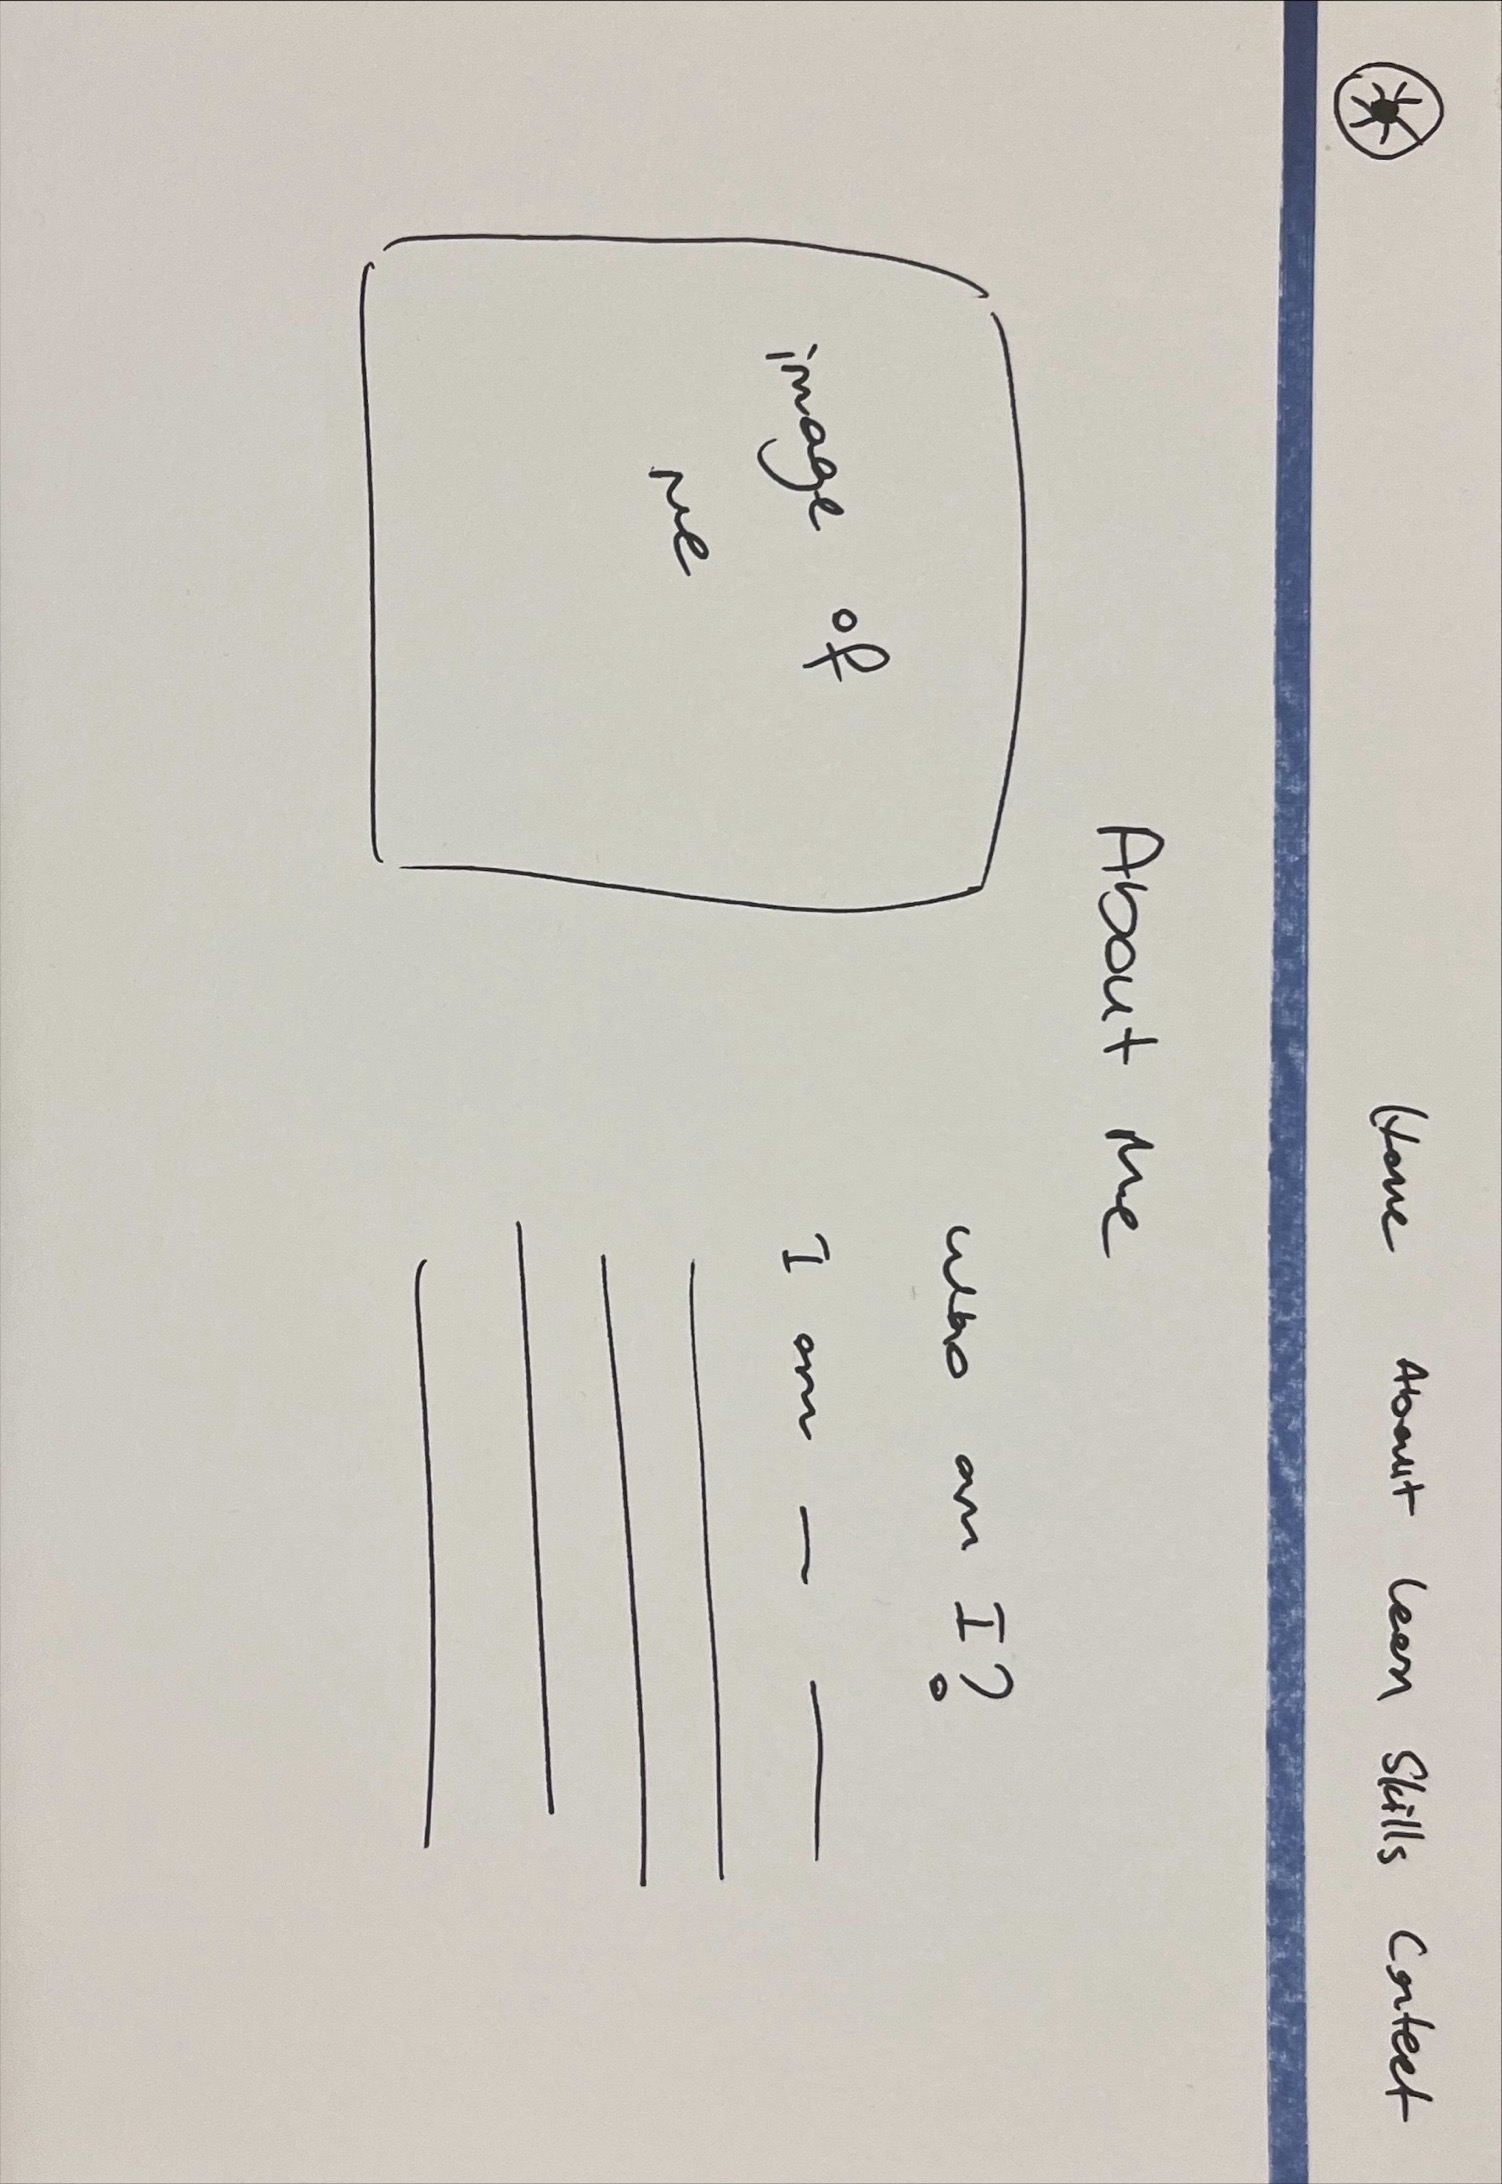 Home About Learn Skills Contact
About Me
image of
me
Who am I?
I am